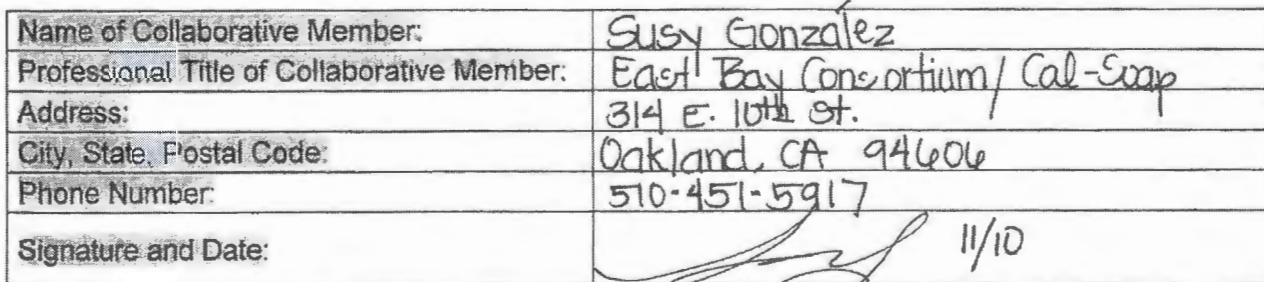 Name of Collaborative Member: Susy González
Professional Title of Collaborative Member: East Bay Consortium/ Cal-Soap
Address: 314 E. 10th St.
City, State, Postal Code: Oakland, CA 94606
Phone Number: 510-451-5917
Signature and Date: 11/10